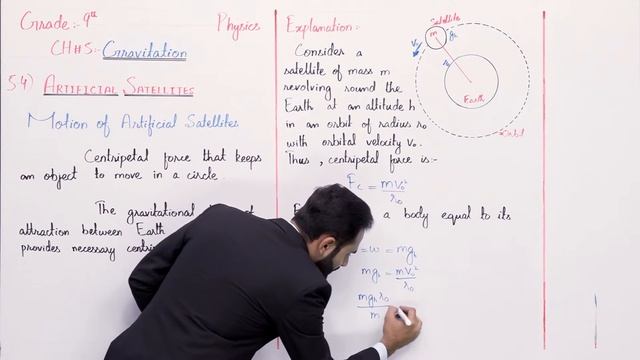 Grade:- 9th
Physics
CH#5:- Gravitation
5.4) ARTIFICIAL SATELLITES
Motion of Artificial Satellites
Centripetal force that keeps
an object to move in a circle.
The gravitational
attraction between Earth
provides necessary
Explanation:-
Consider a
satellite of mass m
revolving round the
Earth at an altitude h
in an orbit of radius r₀
with orbital velocity v₀.
Thus, centripetal force is:-
Fc = mv₀²/r₀
a body equal to its
= w = mgₕ
mgₕ = mv₀²/r₀
mgₕr₀/m
Satellite
m
gₕ
v₀
r₀
Earth
Orbit